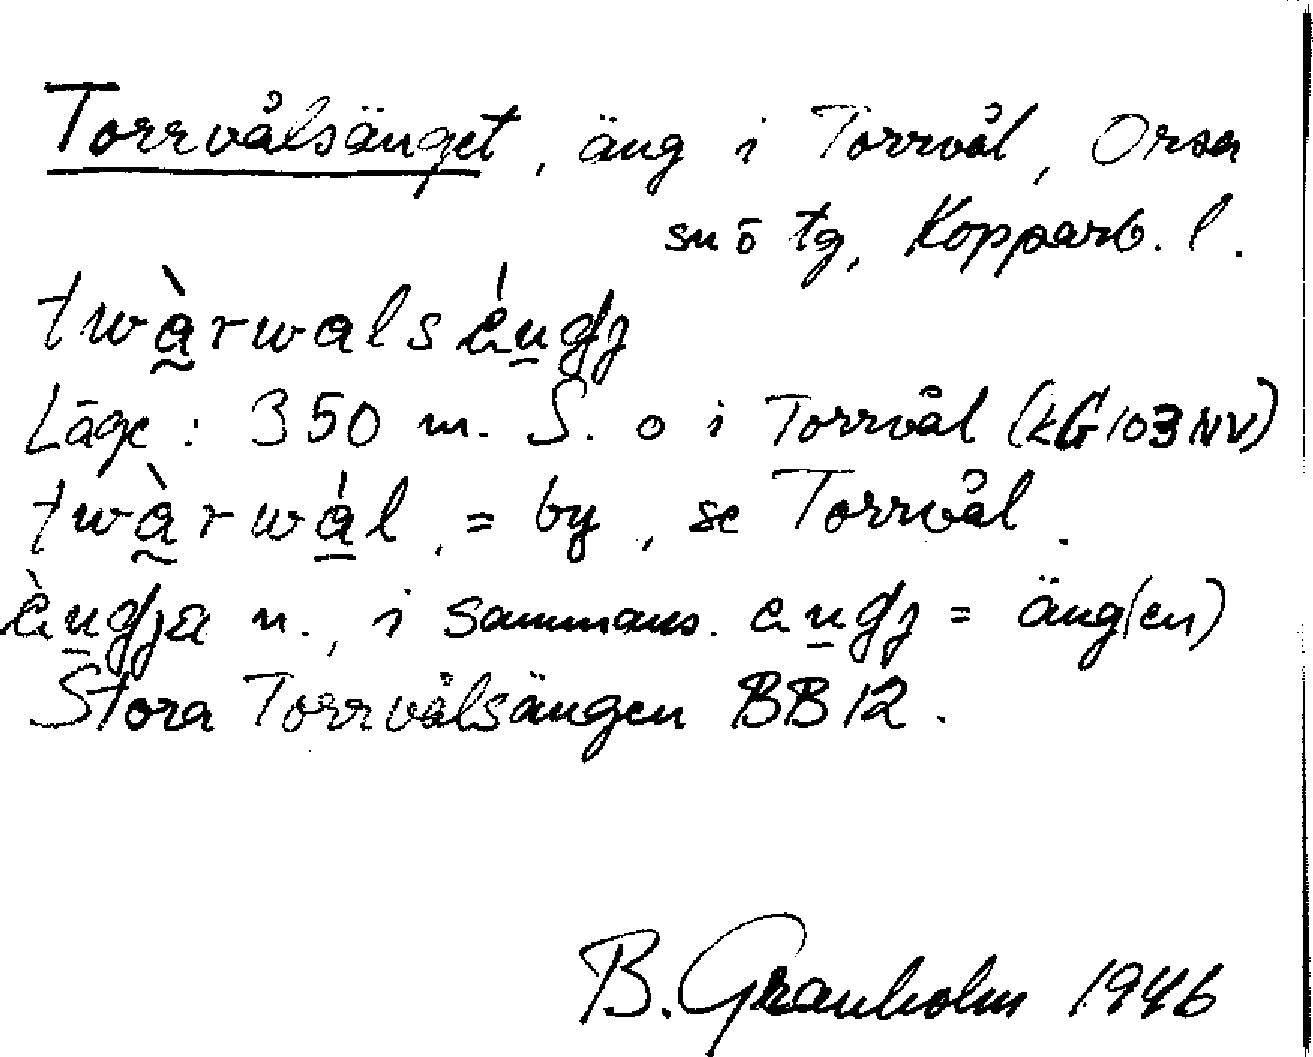 Torrvålsänget, äng i Torrvål, Orsa
sn o tg, Kopparb. l.
twàrwalséngj
Läge: 350 m. S. o i Torrvål (kG 103 NV)
twàrwál, = by, se Torrvål.
èngja n., i sammans. engj = äng(en)
Stora Torrvålsängen BB 12.
B. Granholm 1946